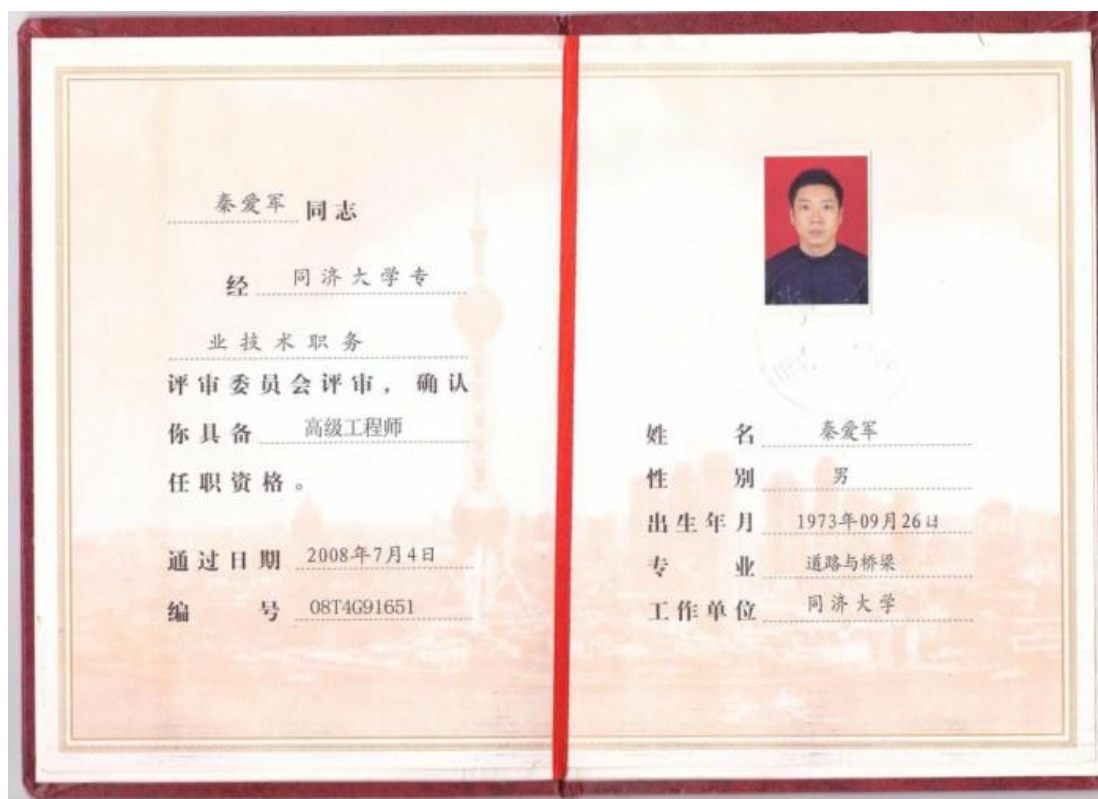 秦爱军 同志
经 同济大学专
业技术职务
评审委员会评审，确认
你具备 高级工程师
任职资格。
通过日期 2008年7月4日
编 号 08T4G91651
姓 名 秦爱军
性 别 男
出生年月 1973年09月26日
专 业 道路与桥梁
工作单位 同济大学